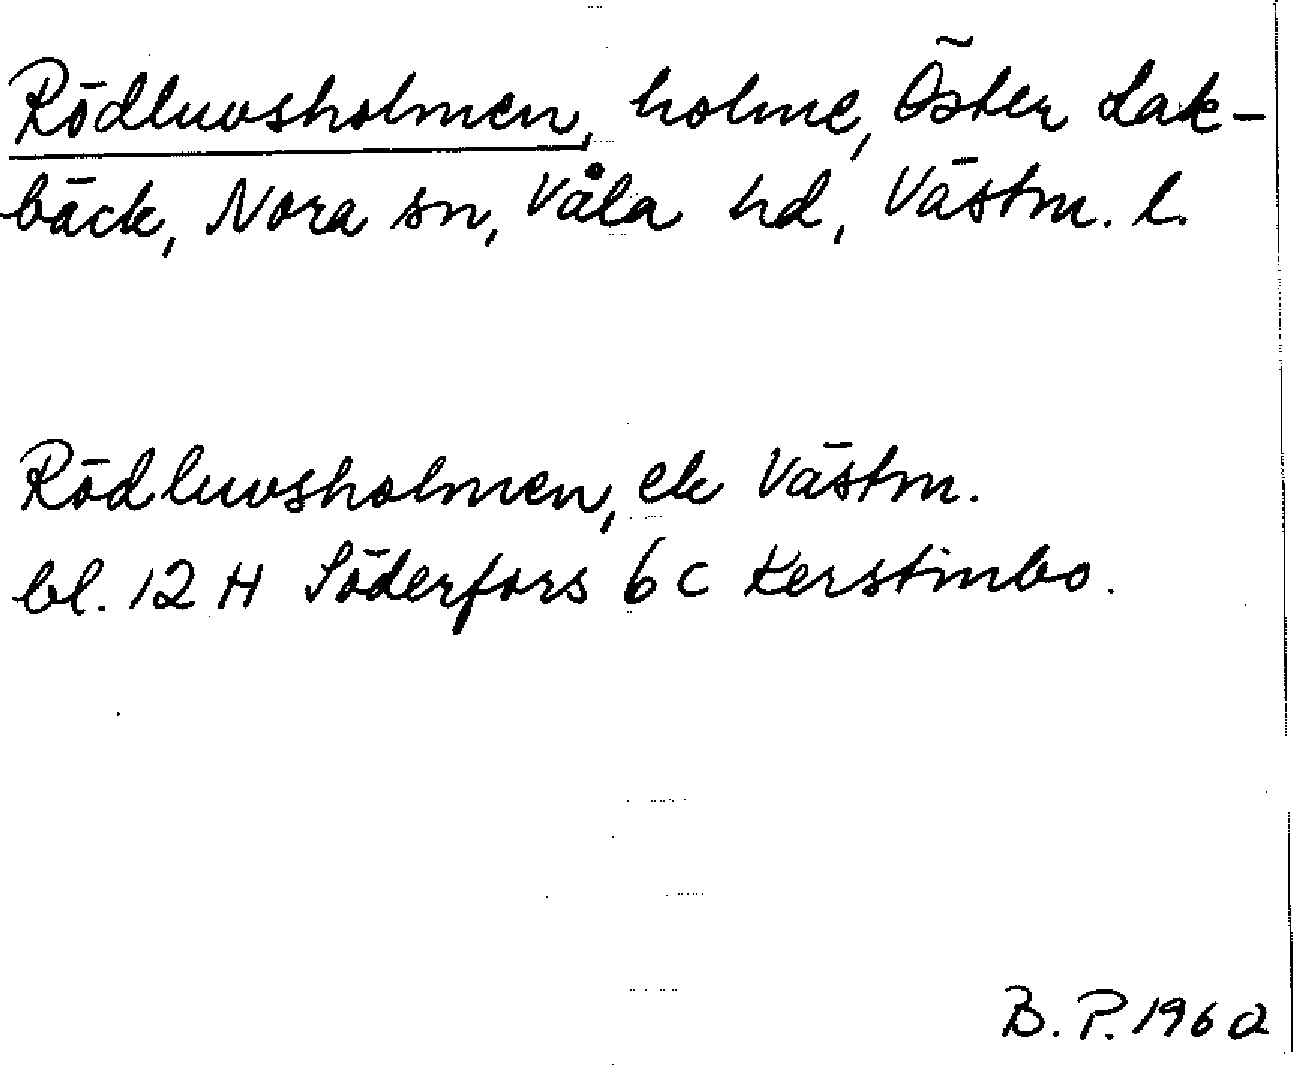 Rödluvsholmen, holme, Öster Lak-
bäck, Nora sn, Våla hd, Västm. l.
Rödluvsholmen, ek Västm.
bl. 12 H Söderfors 6 c Kerstinbo.
B. P. 1960